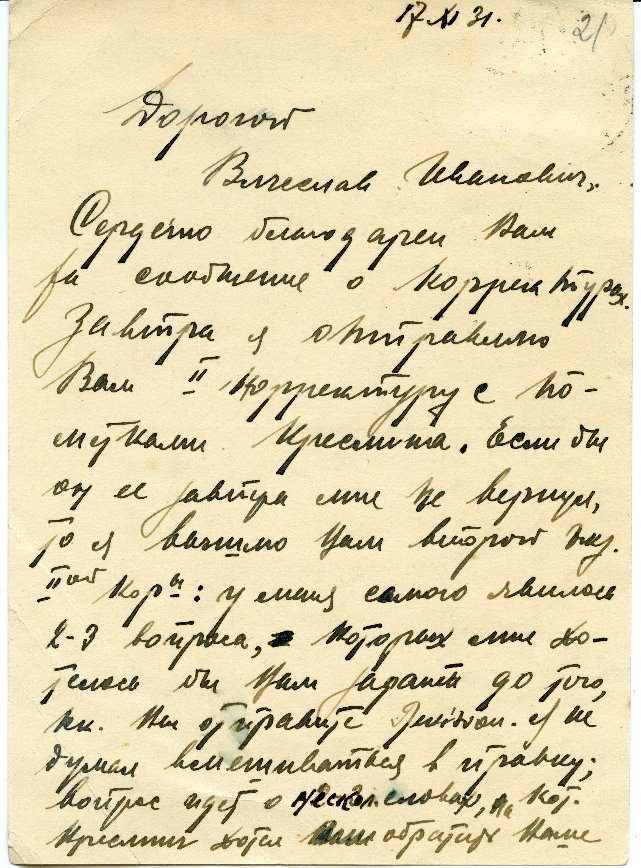 17 XI 31.
21
Дорогой
Вячеслав Иванович,
Сердечно благодарен Вам
за сообщение о корректурах.
Завтра я отправлю
Вам II корректуру с по-
метками Креслинга. Если бы
он ее завтра мне не вернул,
то я вышлю Вам второй экз.
II-ой кор-ы: у меня самого явилось
2-3 вопроса, которых мне хо-
телось бы Вам задать до того,
как Вы отправите Revision. Я не
думал вмешиваться в правку;
вопрос идет о нескол. словах, на кот.
Креслинг хотел обратить Ваше